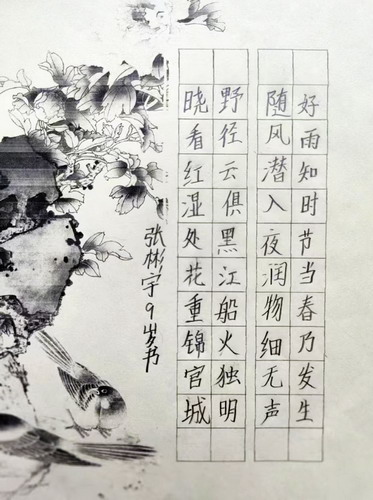 好雨知时节当春乃发生
随风潜入夜润物细无声
野径云俱黑江船火独明
晓看红湿处花重锦官城
张彬宇9岁书